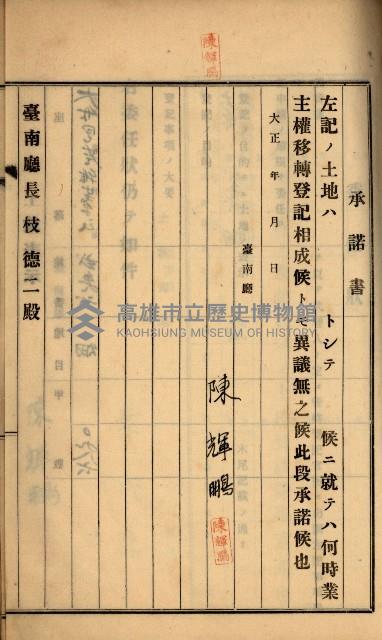 陳輝鵬
承諾書
左記ノ土地ハ トシテ 候ニ就テハ何時業
主權移轉登記相成候トモ異議無之候此段承諾候也
大正 年 月 日
臺南廳
陳輝鵬
陳輝鵬
臺南廳長枝德二殿
高雄市立歷史博物館
KAOHSIUNG MUSEUM OF HISTORY